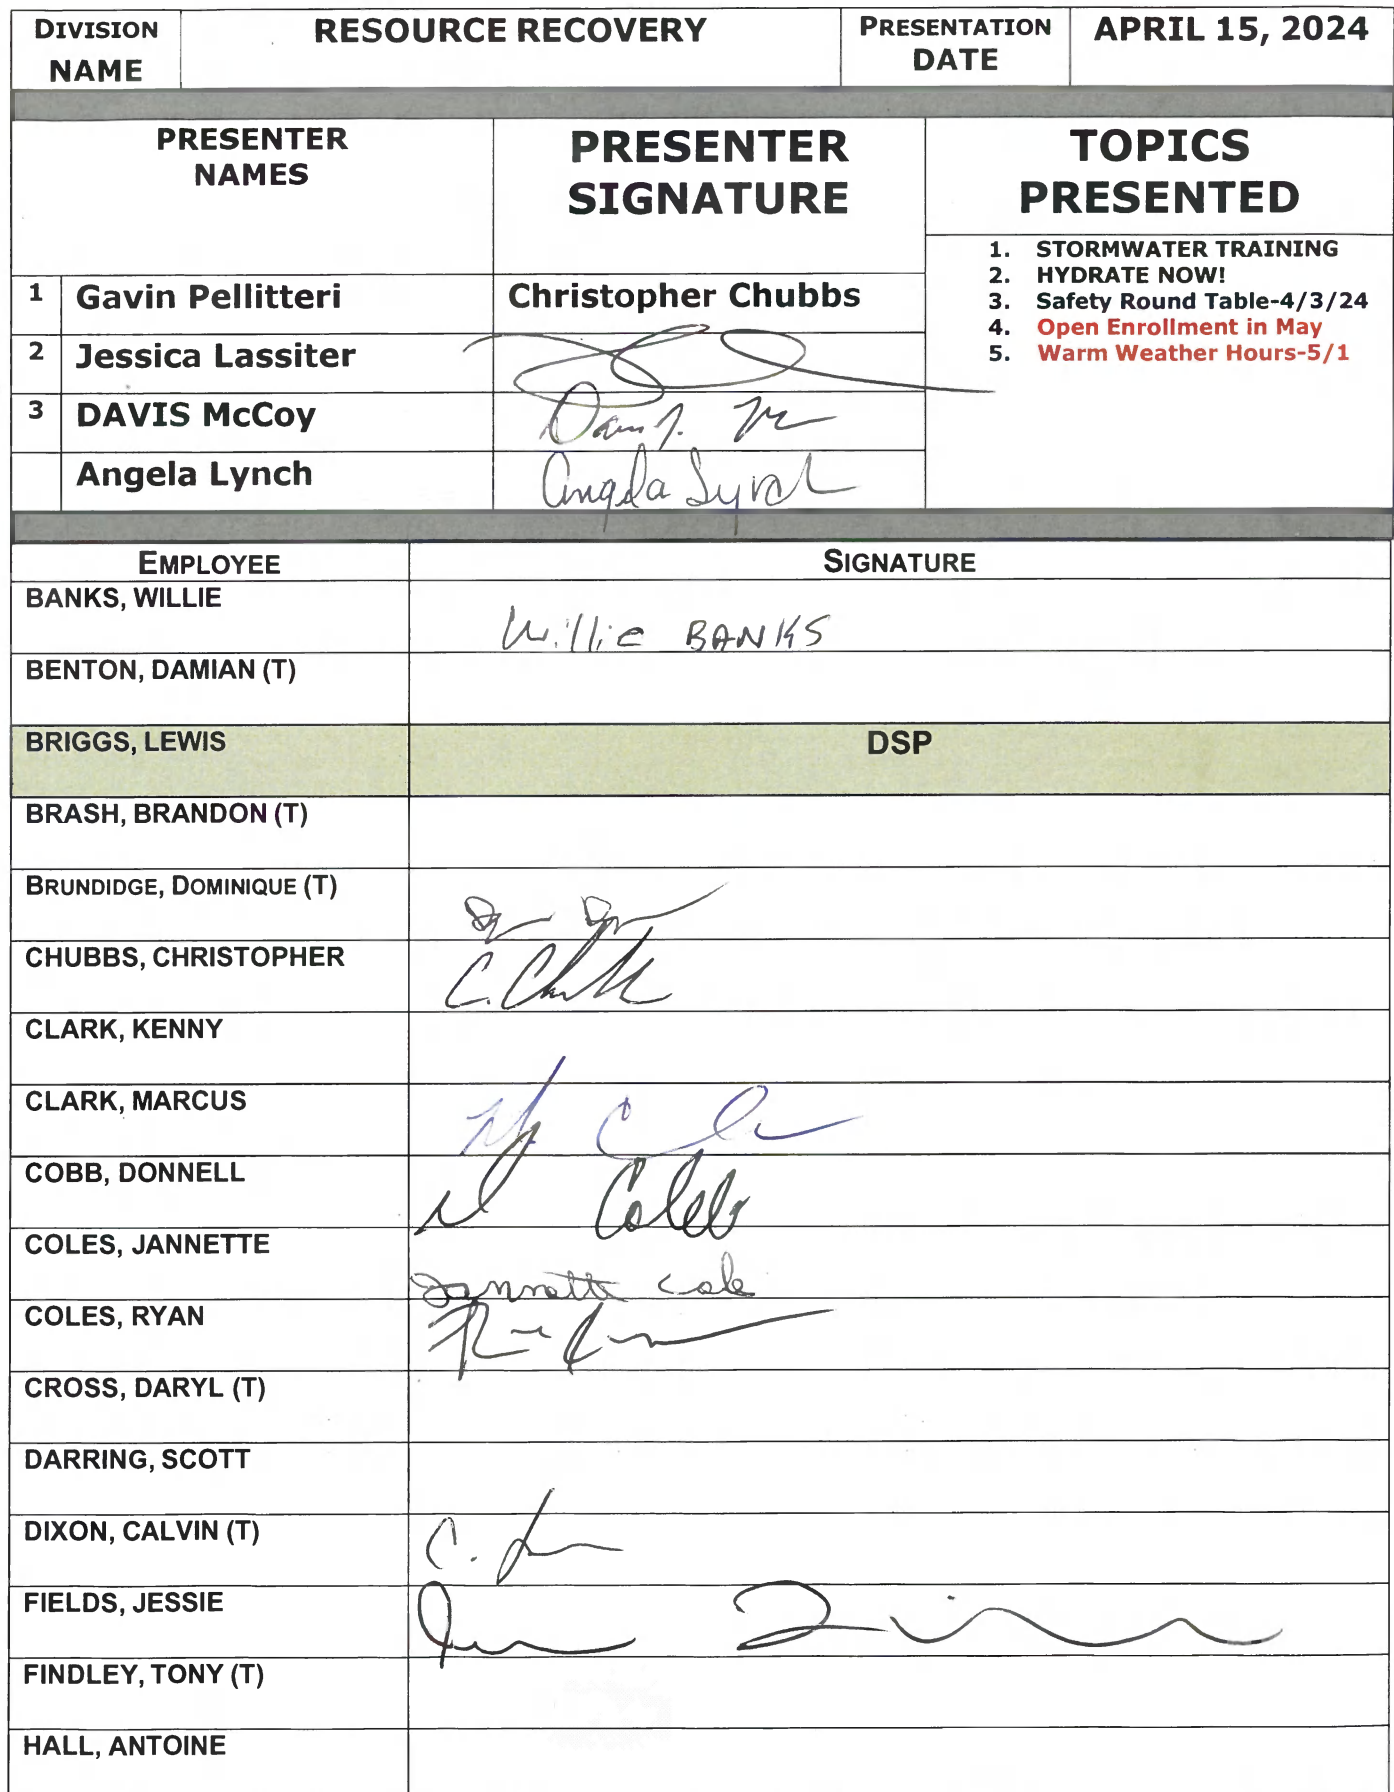 DIVISION NAME RESOURCE RECOVERY PRESENTATION DATE APRIL 15, 2024
PRESENTER NAMES
PRESENTER SIGNATURE
TOPICS PRESENTED
1. STORMWATER TRAINING
2. HYDRATE NOW!
3. Safety Round Table-4/3/24
4. Open Enrollment in May
5. Warm Weather Hours-5/1
1 Gavin Pellitteri Christopher Chubbs
2 Jessica Lassiter
3 DAVIS McCoy
Angela Lynch Angela Lynch
EMPLOYEE SIGNATURE
BANKS, WILLIE Willie BANKS
BENTON, DAMIAN (T)
BRIGGS, LEWIS DSP
BRASH, BRANDON (T)
BRUNDIDGE, DOMINIQUE (T)
CHUBBS, CHRISTOPHER
CLARK, KENNY
CLARK, MARCUS
COBB, DONNELL
COLES, JANNETTE Jannette Cole
COLES, RYAN
CROSS, DARYL (T)
DARRING, SCOTT
DIXON, CALVIN (T)
FIELDS, JESSIE
FINDLEY, TONY (T)
HALL, ANTOINE